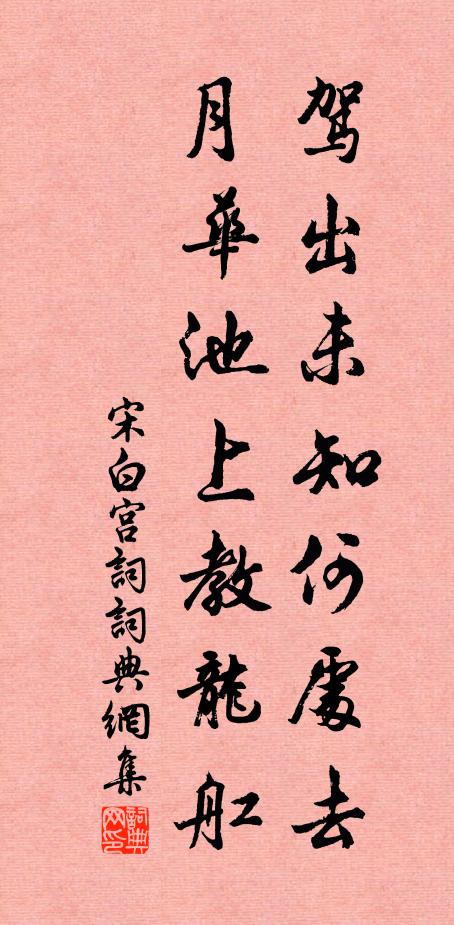 驾出未知何處去
月華池上教龍舡
宋白宫詞詞典網集
詞典网印